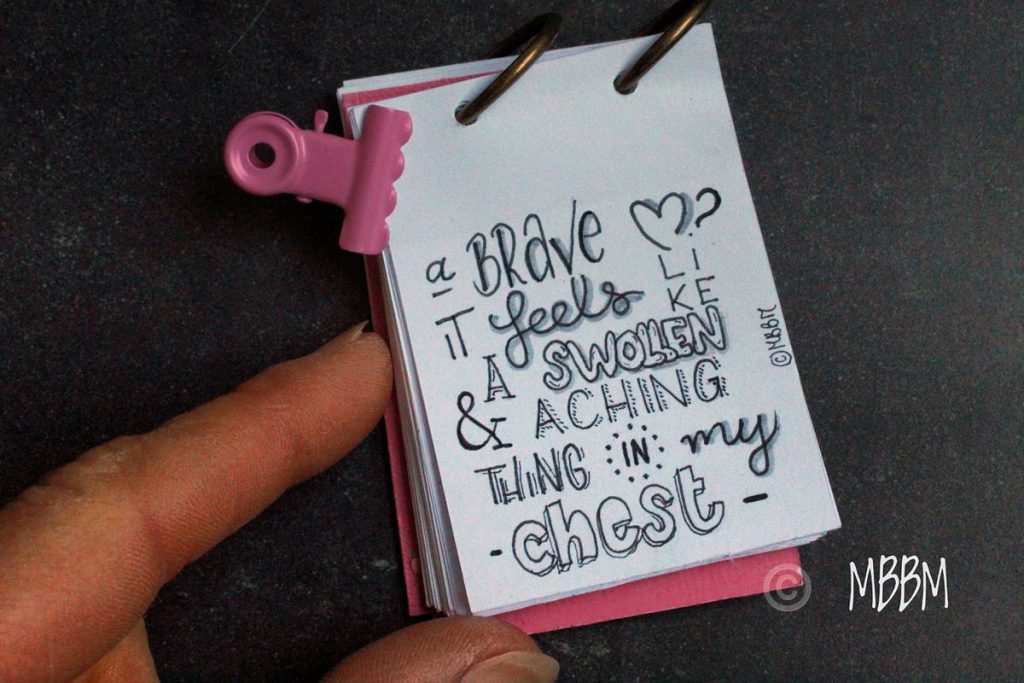 a BRave ♡?
IT feels LIKE
A SWOLLEN
& ACHING
THING IN my
- chest -
©MBBM
© MBBM